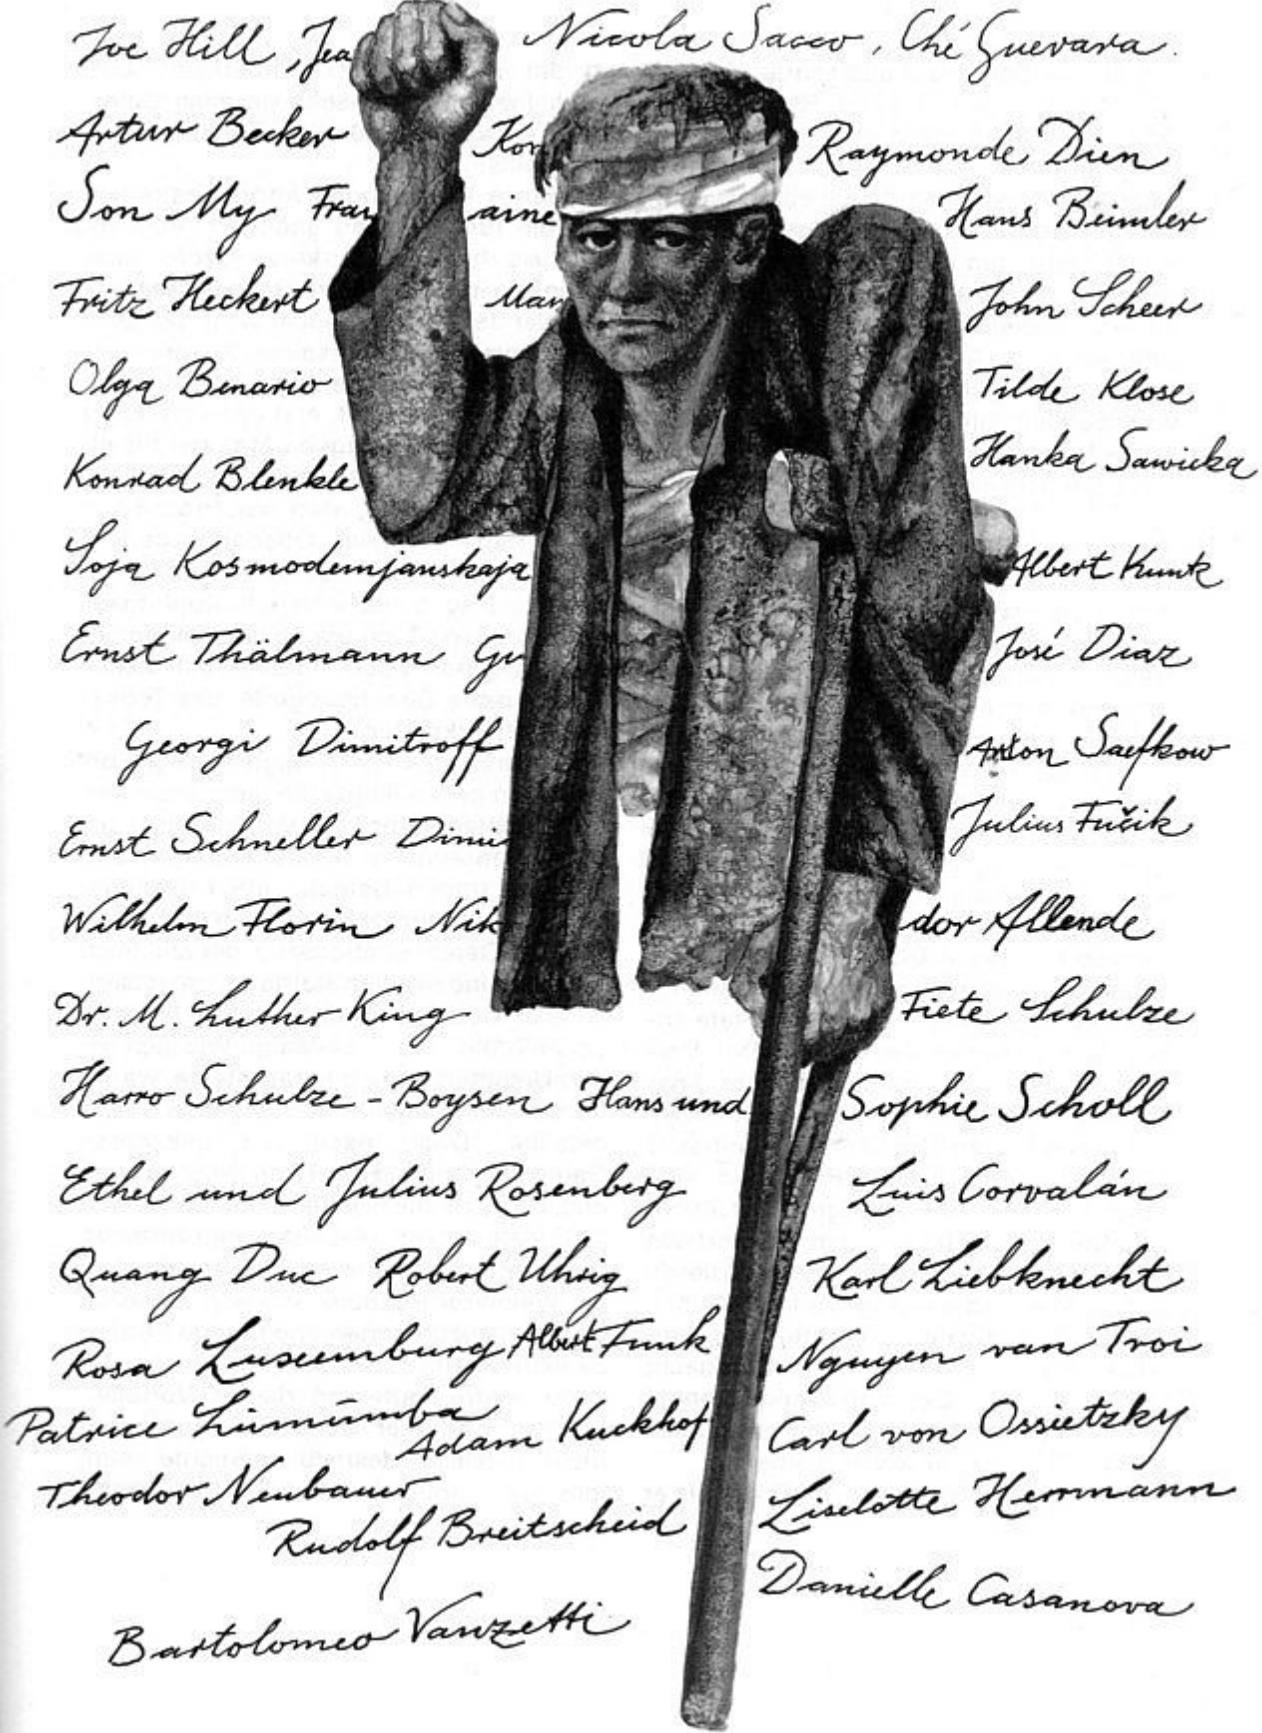 Joe Hill, Jea Nicola Sacco, Ché Guevara.
Artur Becker Kon Raymonde Dien
Son My Frau aine Hans Beimler
Fritz Heckert Man John Scheer
Olga Benario Tilde Klose
Konrad Blenkle Hanka Sawicka
Soja Kosmodemjanskaja Albert Kuntz
Ernst Thälmann Gu José Diaz
Georgi Dimitroff Anton Saefkow
Ernst Schneller Dimi Julius Fučik
Wilhelm Florin Nik dor Allende
Dr. M. Luther King Fiete Schulze
Harro Schulze-Boysen Hans und Sophie Scholl
Ethel und Julius Rosenberg Luis Corvalán
Quang Duc Robert Uhrig Karl Liebknecht
Rosa Luxemburg Albert Funk Nguyen van Troi
Patrice Lumumba Adam Kuckhof Carl von Ossietzky
Theodor Neubauer Liselotte Herrmann
Rudolf Breitscheid Danielle Casanova
Bartolomeo Vanzetti